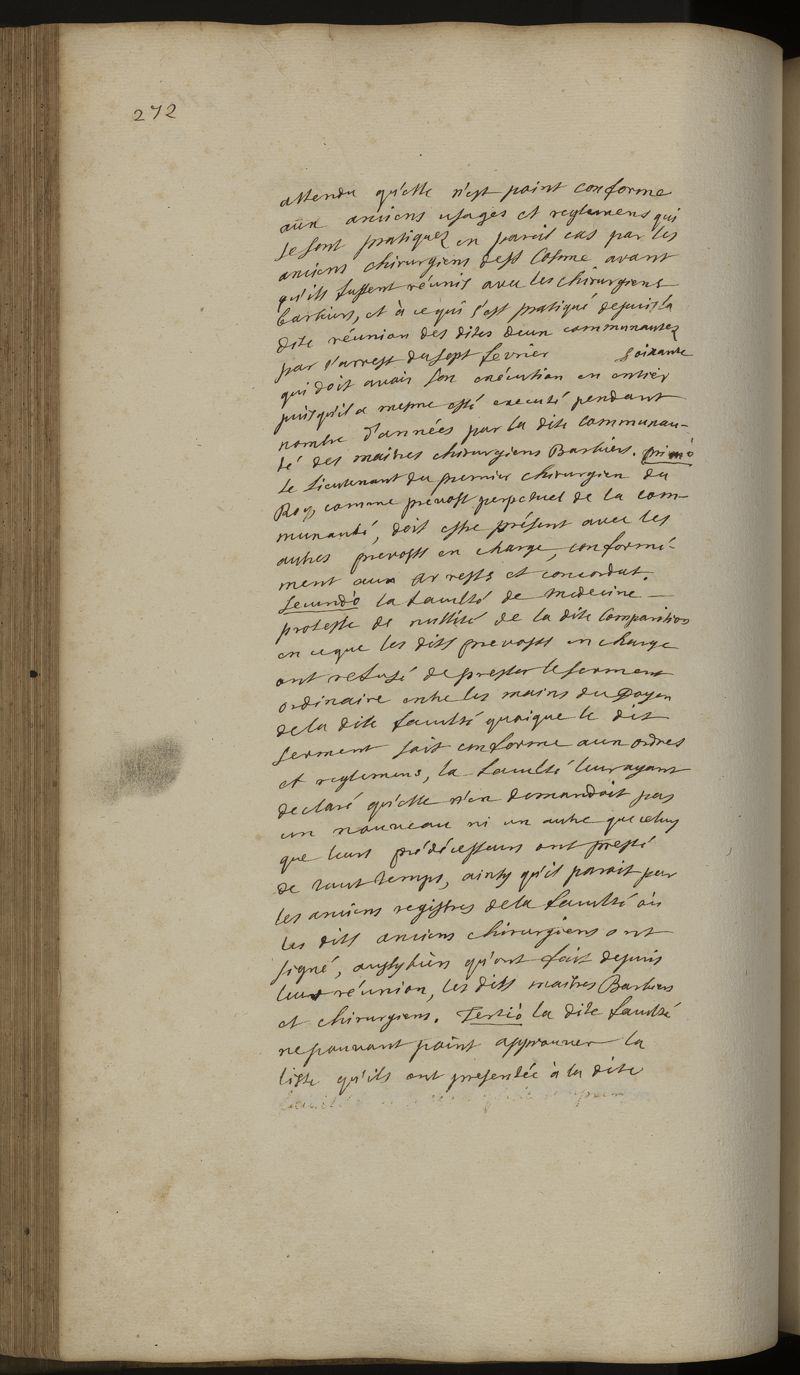 272
attendu qu'elle n'est point conforme
aux anciens usages et reglemens qui
se sont pratiquez en pareil cas par les
anciens chirurgiens de St Cosme avant
qu'ils fussent réunis avec les chirurgiens
barbiers, et à ce qui s'est pratiqué depuis la
dite réunion des dites deux communautez
par l'arrest du sept fevrier soixante
qui doit avoir son exécution en entier
puisqu'il a mesme esté executé pendant
nombre d'années par la dite communau-
té des maitres chirurgiens Barbiers. primò
le Lieutenant du premier chirurgien du
Roy, comme prevost perpetuel de la com-
munauté, doit estre présent avec les
autres prevosts en charge, conformé-
ment aux arrests et concordat.
Secundò la faculté de medecine
proteste de nullité de la dite Comparition
en ce que les dits prevosts en charge
ont refusé de prester le serment
ordinaire entre les mains du Doyen
de la dite faculté quoique le dit
serment soit conforme aux ordres
et reglemens, la faculté leur ayant
declaré qu'elle n'en demandoit pas
un nouveau ni un autre que celuy
que leurs prédécesseurs ont presté
de tout temps, ainsy qu'il paroit par
les anciens registres de la faculté où
les dits anciens chirurgiens ont
signé, aussy bien qu'ont fait depuis
leur réunion, les dits maitres Barbiers
et chirurgiens. Tertiò la dite faculté
ne pouvant point approuver la
liste qu'ils ont presentée à la dite